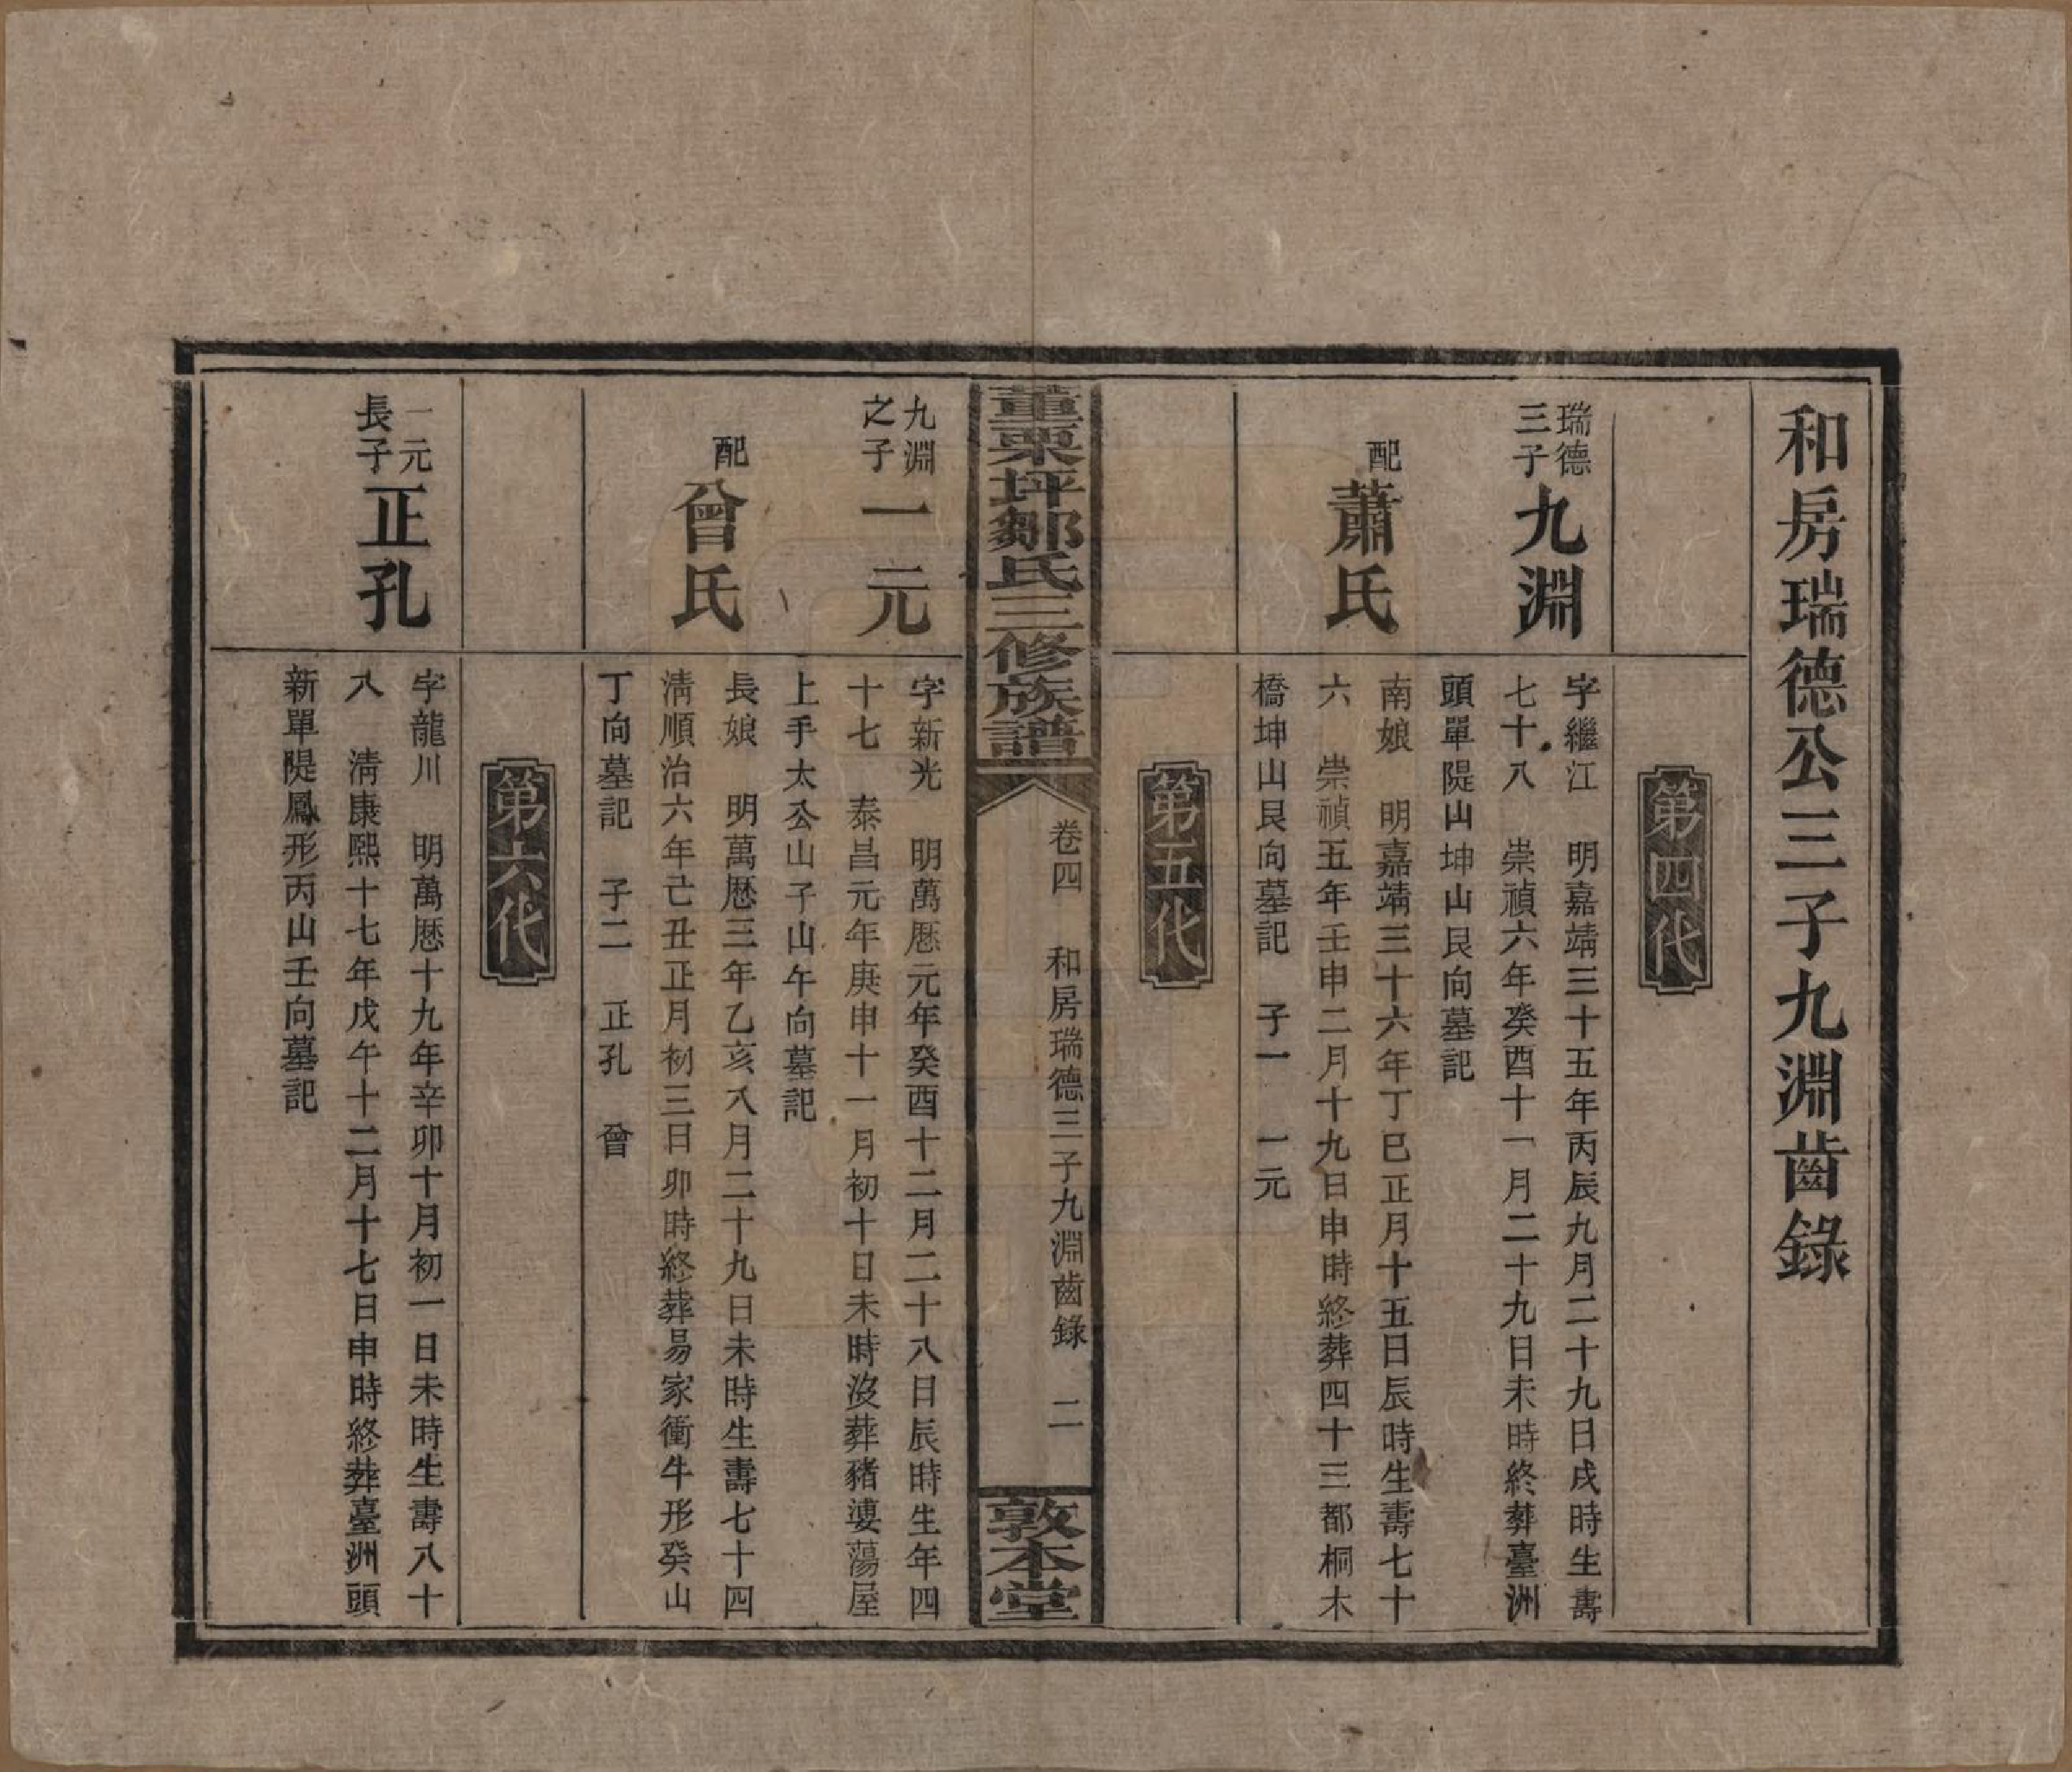 和房瑞德公三子九淵齒錄
第四代
瑞德
三子
九淵
字繼江　明嘉靖三十五年丙辰九月二十九日戌時生壽
七十八　崇禎六年癸酉十一月二十九日未時終葬臺洲
頭單隄山坤山艮向墓記
配
蕭氏
南娘　明嘉靖三十六年丁巳正月十五日辰時生壽七十
六　崇禎五年壬申二月十九日申時終葬四十三都桐木
橋坤山艮向墓記　子一　一元
第五代
董栗坪鄒氏三修族譜
卷四　和房瑞德三子九淵齒錄　二
敦本堂
九淵
之子
一元
字新光　明萬曆元年癸酉十二月二十八日辰時生年四
十七　泰昌元年庚申十一月初十日未時沒葬豬婆蕩屋
上手太公山子山午向墓記
配
曾氏
長娘　明萬曆三年乙亥八月二十九日未時生壽七十四
清順治六年己丑正月初三日卯時終葬易家衝牛形癸山
丁向墓記　子二　正孔　曾
第六代
一元
長子
正孔
字龍川　明萬曆十九年辛卯十月初一日未時生壽八十
八　清康熙十七年戊午十二月十七日申時終葬臺洲頭
新單隄鳳形丙山壬向墓記